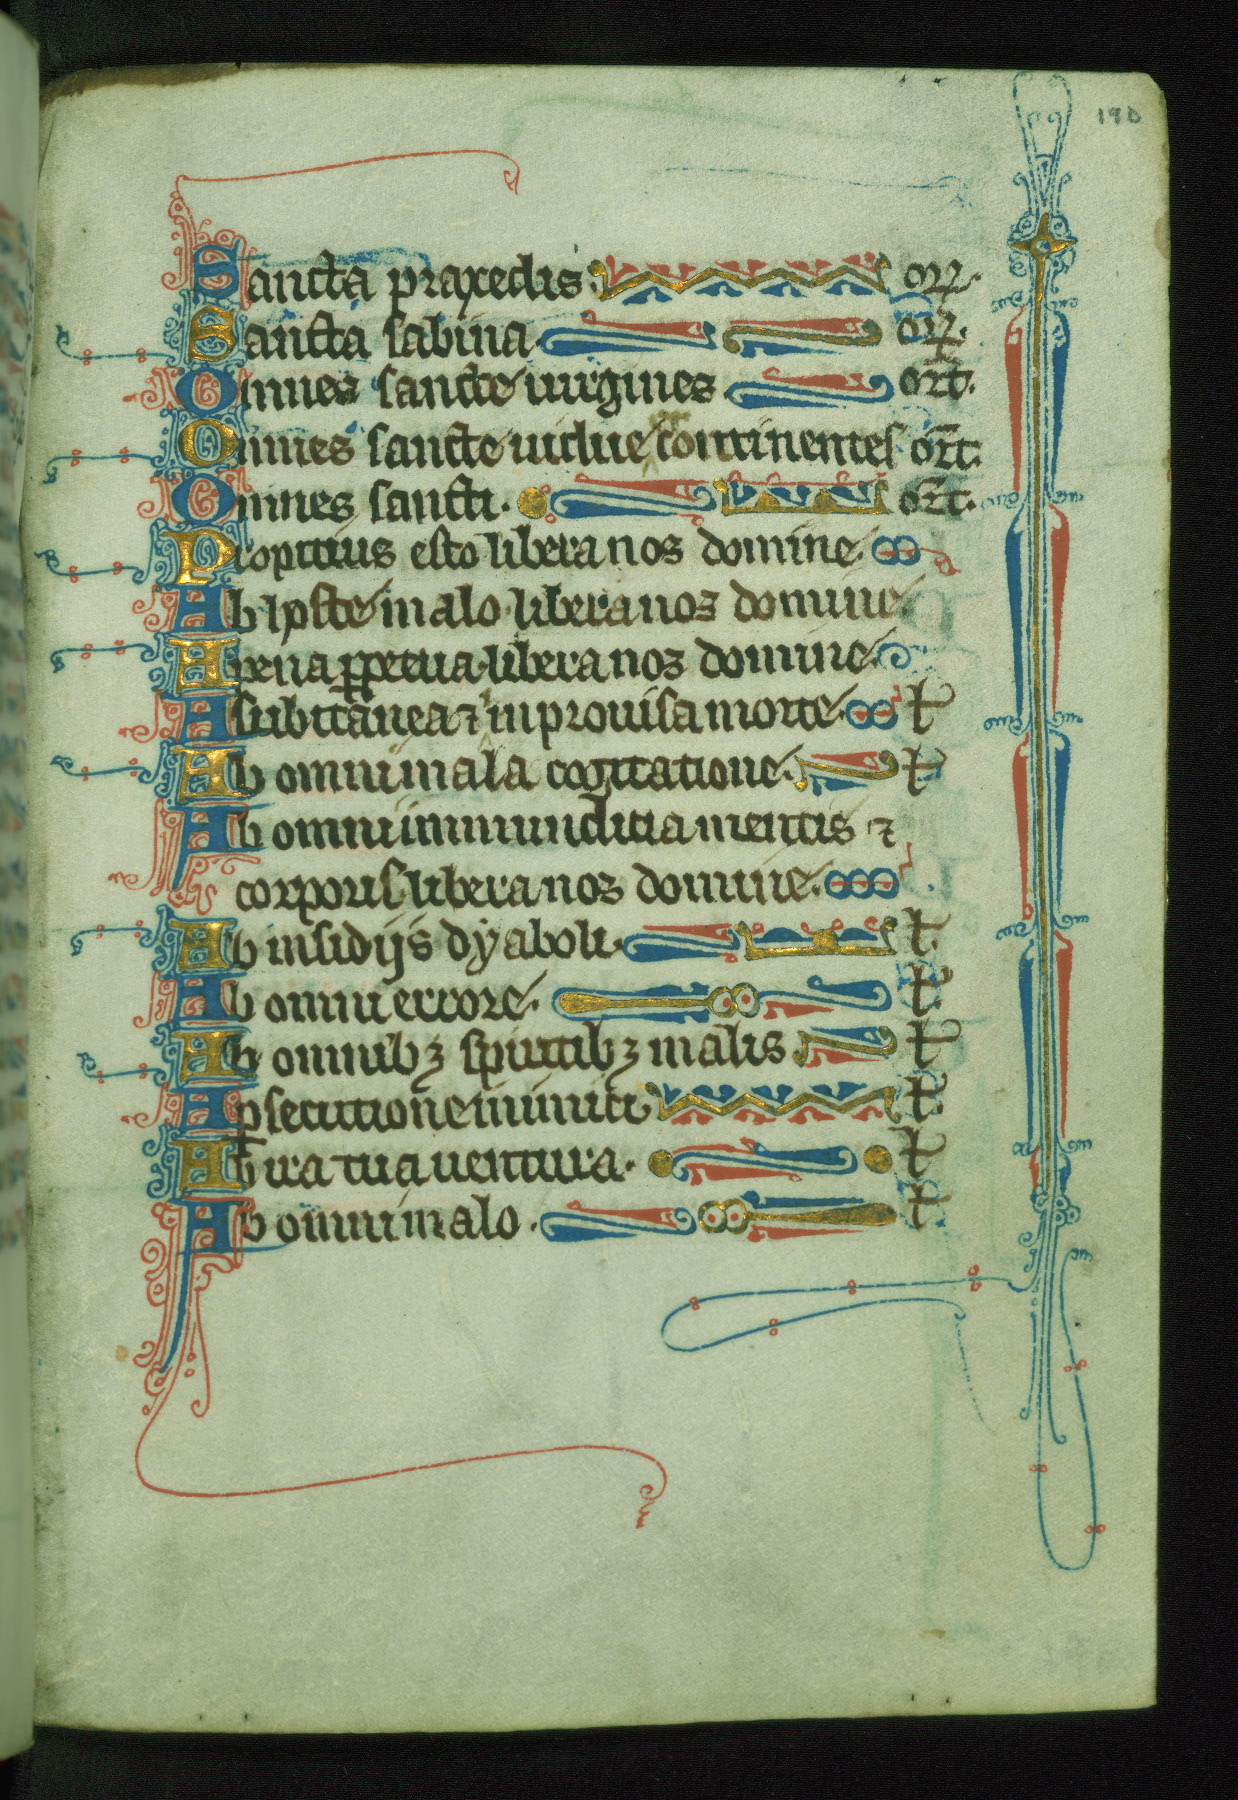 190
Sancta praxedis. or͛.
Sancta sabina. or͛.
Omnes sancte uirgines ort.
Omnes sancte uidue ⁊ continentes ort.
Omnes sancti. ort.
Propitius esto libera nos domine.
Ab hoste malo libera nos domine.
A pena ꝑpetua libera nos domine.
A subitanea ⁊ inprouisa morte. t
Ab omni mala cogitatione. t
Ab omni inmundicia mentis ⁊
corporis libera nos domine.
Ab insidijs dyaboli. t
Ab omni errore. t
Ab omnibꝫ spiritibꝫ malis t
A ꝑsecutione inimici t
Ab ira tua uentura. t
Ab omni malo. t